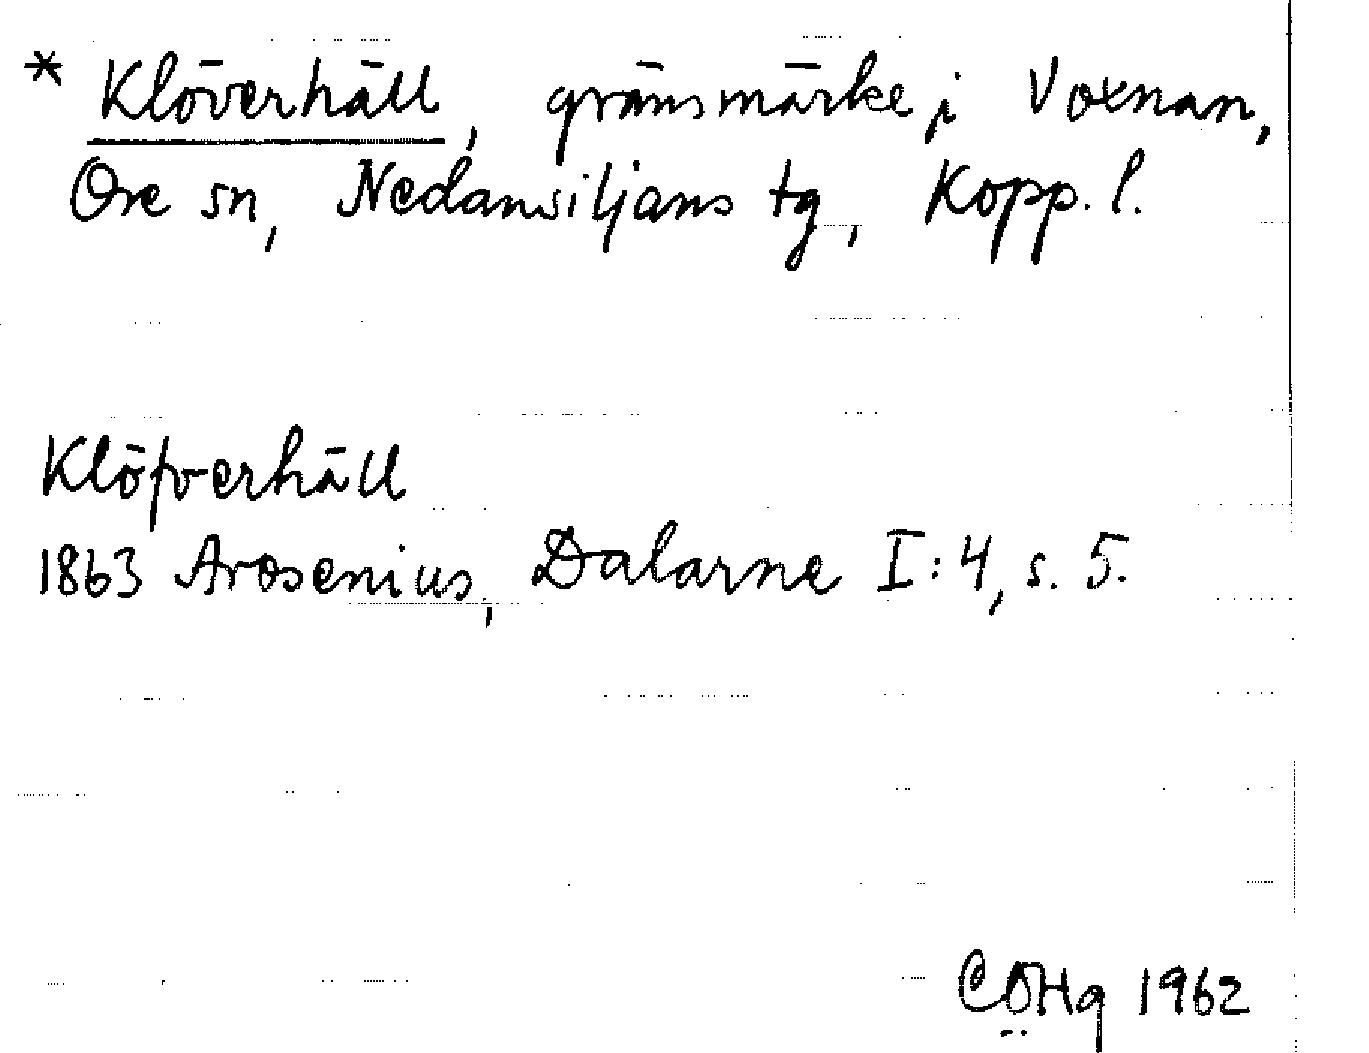 * Klöverhäll, gränsmärke i Voxnan,
Ore sn, Nedansiljans tg, Kopp. l.
Klöfverhäll
1863 Arosenius, Dalarne I:4, s. 5.
CÖHg 1962